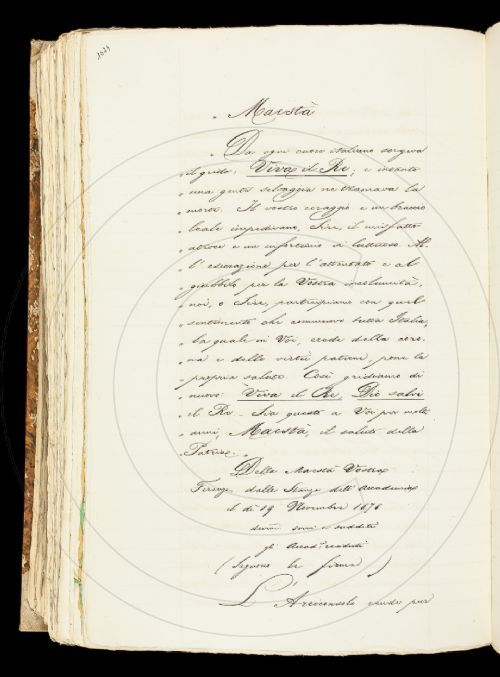 1029
„ Maestà
„ Da ogni cuore italiano sorgeva
„ il grido: Viva il Re; e intanto
„ una gente selvaggia ne tramava la
„ morte. Il vostro coraggio e un braccio
„ leale impedivano, Sire, il misfatto
„ atroce e un infortunio sì luttuoso. Al
„ l'esecrazione per l'attentato e al
„ giubbilo per la Vostra incolumità,
„ noi, o Sire, partecipiamo con quel
„ sentimento che commuove tutta Italia,
„ la quale in Voi, erede della coro
„ na e delle virtù paterne, pone la
„ propria salute. Così gridiamo di
„ nuovo: Viva il Re, Dio salvi
„ il Re - Sia questo a Voi per molti
„ anni, Maestà, il saluto della
„ Patria. „
Della Maestà Vostra
Firenze, dalle Stanze dell'Accademia
il dì 19 Novembre 1878
devmi servi e sudditi
gli Accad.ci residenti
(Seguono le firme)
L'Arciconsolo quindi